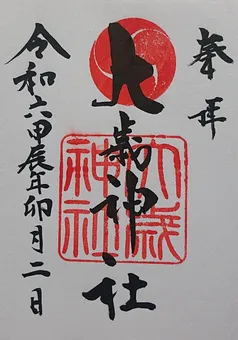 奉拝
大歳神社
大歳
神社
令和六甲辰年卯月二日